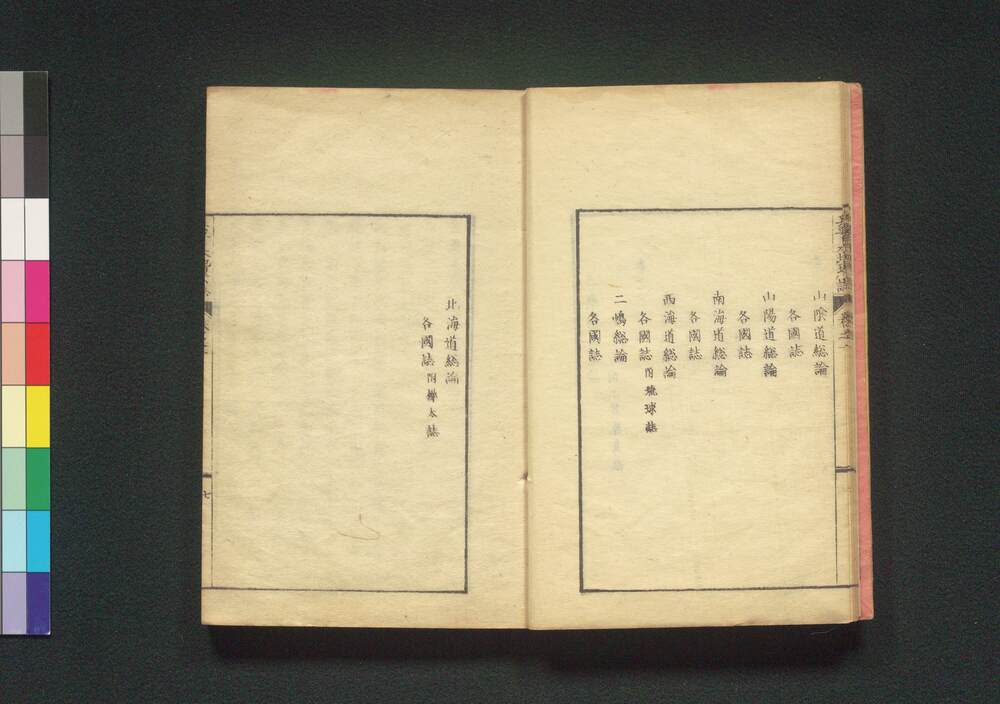 山陰道総論
各國誌
山陽道総論
各國誌
南海道総論
各國誌
西海道総論
各國誌 附琉球誌
二嶋総論
各國誌
北海道総論
各國誌 附樺太誌
七